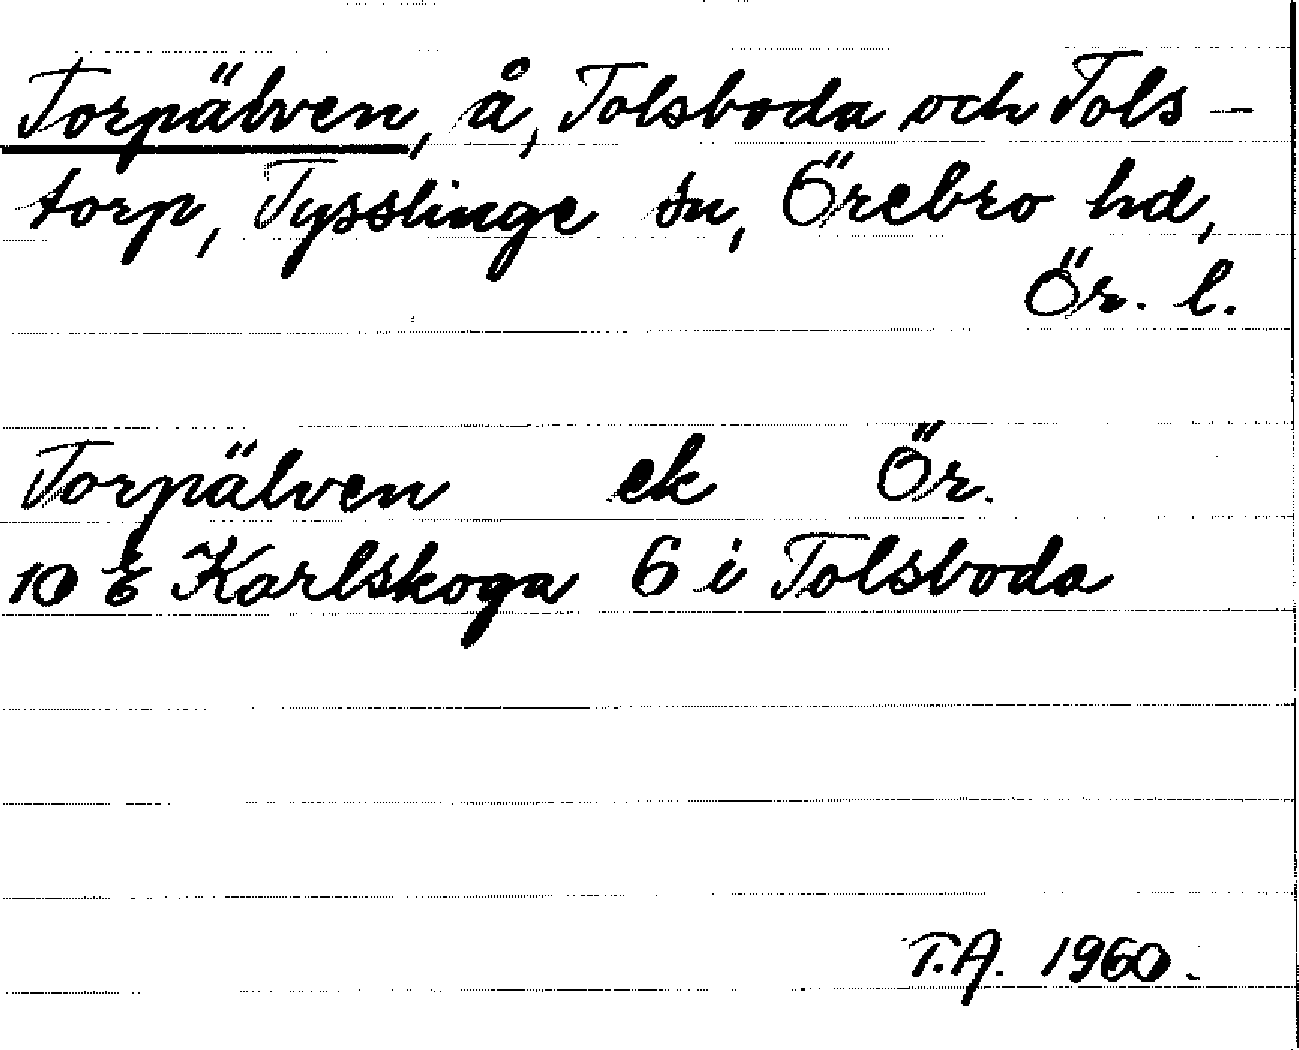 Torpälven, å, Tolsboda och Tols-
torp, Tysslinge sn, Örebro hd,
Ör. l.
Torpälven ek Ör.
10 E Karlskoga 6 i Tolsboda
T.A. 1960.